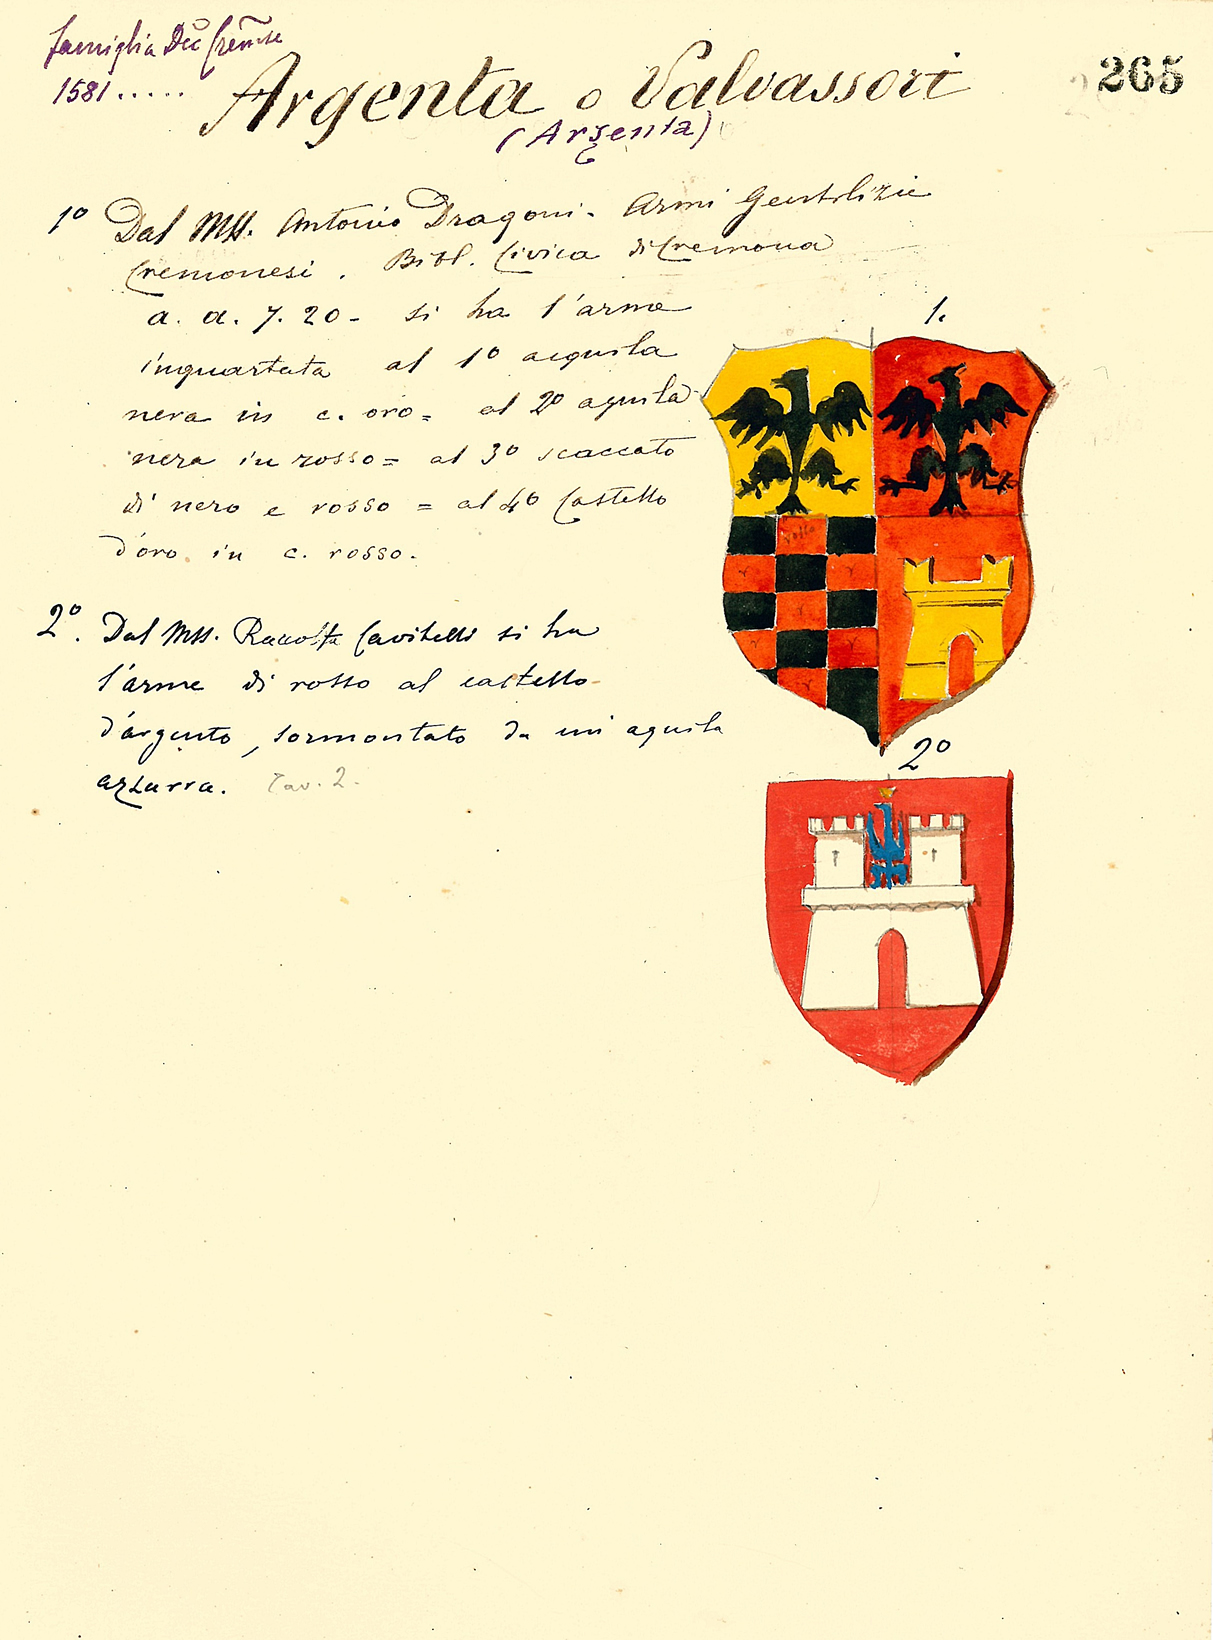 famiglia Dec Cremse
1581.....
265
Argenta o Valvassori
(Argenta)
1º Dal MSS. Antonio Dragoni. Armi Gentilizie
Cremonesi. Bibl. Civica di Cremona
a. a. 7. 20 - si ha l'arma
inquartata al 1º acquila
nera in c. oro = al 2º aquila
nera in rosso = al 3º scaccato
di nero e rosso = al 4º Castello
d'oro in c. rosso.
1.
rosso
2º. Dal MSS. Raccolta Cavitelli si ha
l'arme di rosso al castello
d'argento, sormontato da un'aquila
azzurra. Tav. 2.
2º